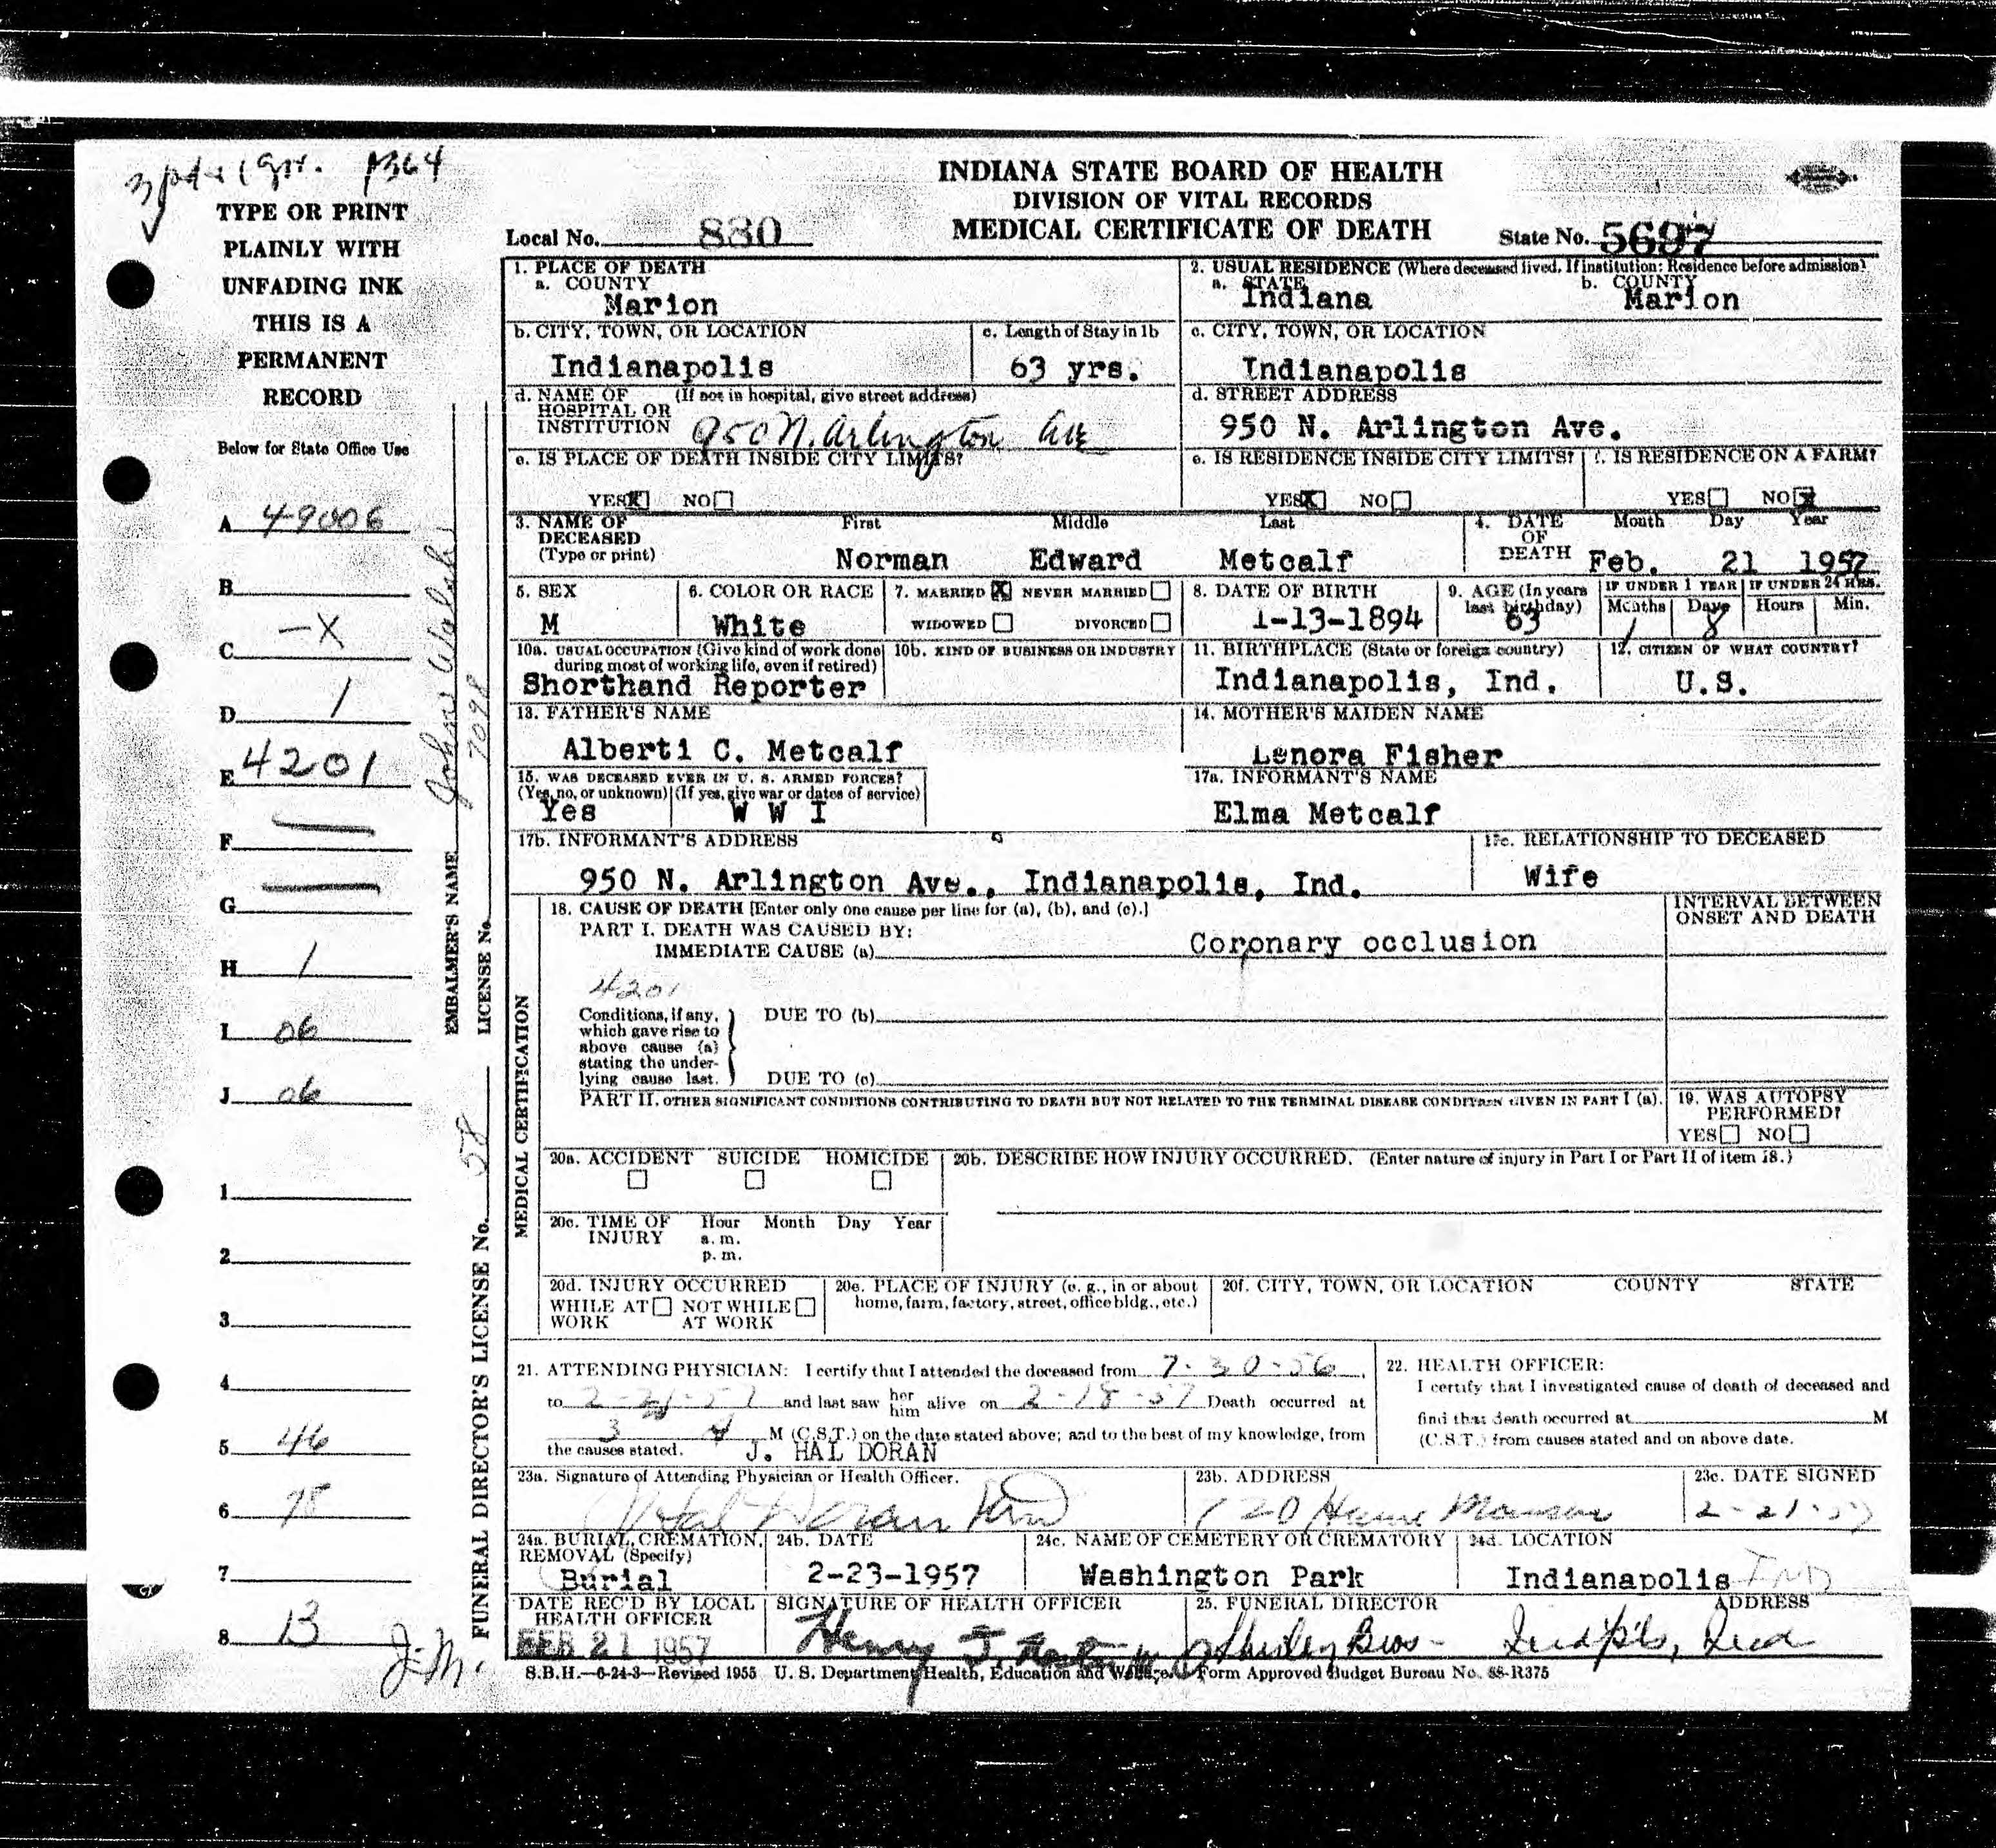 P364
TYPE OR PRINT
PLAINLY WITH
UNFADING INK
THIS IS A
PERMANENT
RECORD
Below for State Office Use
A 49006
B
C -X
D 1
E 4201
F
G
H 1
I 06
J 06
1
2
3
4
5 46
6
7
8 13
J.M.
EMBALMER'S NAME John Walsh
LICENSE No. 7098
FUNERAL DIRECTOR'S LICENSE No. 58
INDIANA STATE BOARD OF HEALTH
DIVISION OF VITAL RECORDS
MEDICAL CERTIFICATE OF DEATH
Local No. 880
State No. 5697
1. PLACE OF DEATH
a. COUNTY
Marion
2. USUAL RESIDENCE (Where deceased lived. If institution: Residence before admission)
a. STATE b. COUNTY
Indiana Marion
b. CITY, TOWN, OR LOCATION c. Length of Stay in 1b
Indianapolis 63 yrs.
c. CITY, TOWN, OR LOCATION
Indianapolis
d. NAME OF (If not in hospital, give street address)
HOSPITAL OR
INSTITUTION 950 N. Arlington Ave
d. STREET ADDRESS
950 N. Arlington Ave.
e. IS PLACE OF DEATH INSIDE CITY LIMITS?
YES X NO
e. IS RESIDENCE INSIDE CITY LIMITS? f. IS RESIDENCE ON A FARM?
YES X NO YES NO X
3. NAME OF First Middle Last
DECEASED
(Type or print) Norman Edward Metcalf
4. DATE Month Day Year
OF
DEATH Feb. 21 1957
5. SEX
M
6. COLOR OR RACE
White
7. MARRIED X NEVER MARRIED
WIDOWED DIVORCED
8. DATE OF BIRTH
1-13-1894
9. AGE (In years
last birthday)
63
IF UNDER 1 YEAR IF UNDER 24 HRS.
Months Days Hours Min.
1 8
10a. USUAL OCCUPATION (Give kind of work done
during most of working life, even if retired)
Shorthand Reporter
10b. KIND OF BUSINESS OR INDUSTRY
11. BIRTHPLACE (State or foreign country)
Indianapolis, Ind.
12. CITIZEN OF WHAT COUNTRY?
U.S.
13. FATHER'S NAME
Alberti C. Metcalf
14. MOTHER'S MAIDEN NAME
Lenora Fisher
15. WAS DECEASED EVER IN U. S. ARMED FORCES?
(Yes, no, or unknown) (If yes, give war or dates of service)
Yes W W I
17a. INFORMANT'S NAME
Elma Metcalf
17b. INFORMANT'S ADDRESS
950 N. Arlington Ave., Indianapolis, Ind.
17c. RELATIONSHIP TO DECEASED
Wife
MEDICAL CERTIFICATION
18. CAUSE OF DEATH [Enter only one cause per line for (a), (b), and (c).]
PART I. DEATH WAS CAUSED BY:
IMMEDIATE CAUSE (a) Coronary occlusion
INTERVAL BETWEEN
ONSET AND DEATH
4201
Conditions, if any,
which gave rise to
above cause (a)
stating the under-
lying cause last.
DUE TO (b)
DUE TO (c)
PART II. OTHER SIGNIFICANT CONDITIONS CONTRIBUTING TO DEATH BUT NOT RELATED TO THE TERMINAL DISEASE CONDITION GIVEN IN PART I (a).
19. WAS AUTOPSY
PERFORMED?
YES NO
20a. ACCIDENT SUICIDE HOMICIDE
20b. DESCRIBE HOW INJURY OCCURRED. (Enter nature of injury in Part I or Part II of item 18.)
20c. TIME OF Hour Month Day Year
INJURY a. m.
p. m.
20d. INJURY OCCURRED
WHILE AT NOT WHILE
WORK AT WORK
20e. PLACE OF INJURY (e. g., in or about
home, farm, factory, street, office bldg., etc.)
20f. CITY, TOWN, OR LOCATION COUNTY STATE
21. ATTENDING PHYSICIAN: I certify that I attended the deceased from 7-30-56,
to 2-21-57 and last saw her him alive on 2-18-57 Death occurred at
3 A M (C.S.T.) on the date stated above; and to the best of my knowledge, from
the causes stated. J. HAL DORAN
22. HEALTH OFFICER:
I certify that I investigated cause of death of deceased and
find that death occurred at M
(C.S.T.) from causes stated and on above date.
23a. Signature of Attending Physician or Health Officer.
J Hal Doran MD
23b. ADDRESS
120 Hume Mansur
23c. DATE SIGNED
2-21-57
24a. BURIAL, CREMATION,
REMOVAL (Specify)
Burial
24b. DATE
2-23-1957
24c. NAME OF CEMETERY OR CREMATORY
Washington Park
24d. LOCATION
Indianapolis IND
DATE REC'D BY LOCAL
HEALTH OFFICER
FEB 21 1957
SIGNATURE OF HEALTH OFFICER
Henry
25. FUNERAL DIRECTOR ADDRESS
Shirley Bros - Indpls, Ind
S.B.H.—6-24-3—Revised 1955 U. S. Department Health, Education and Welfare. Form Approved Budget Bureau No. 68-R375